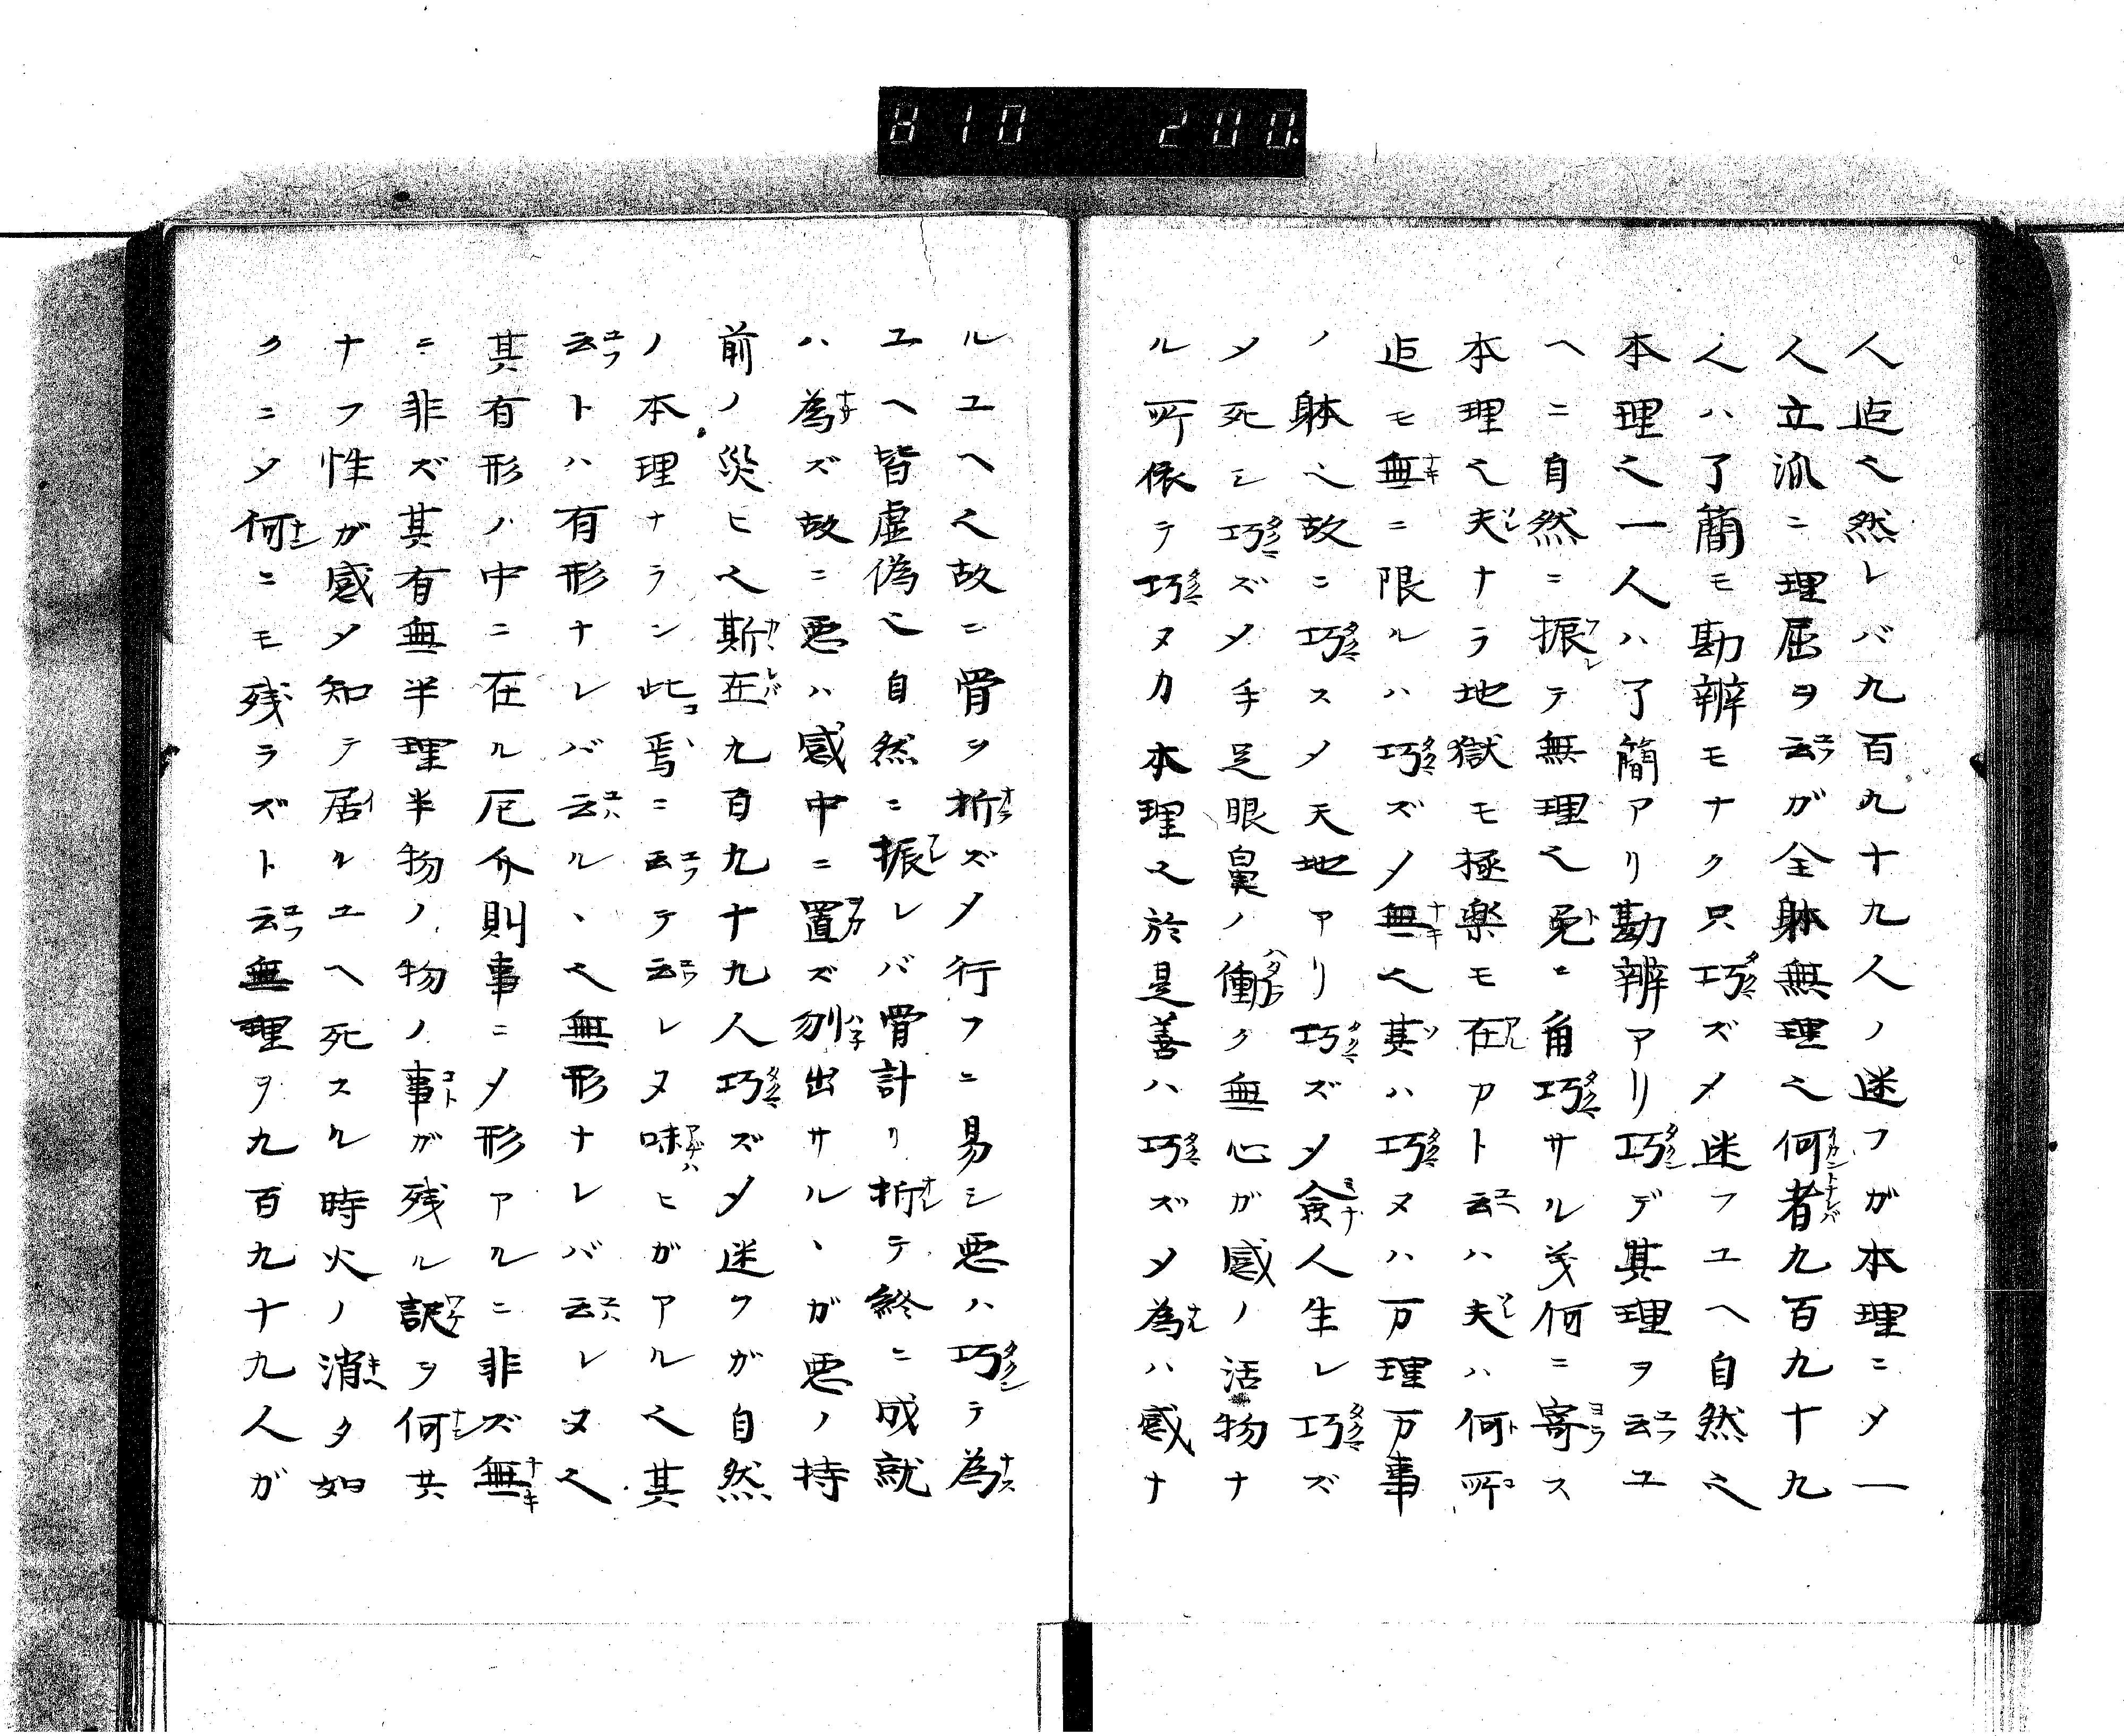 810 200.
人迠之然レバ九百九十九人ノ迷フガ本理ニ〆一
人立派ニ理屈ヲ云ガ全躰無理之何者九百九十九
人ハ了簡モ勘辨モナク只巧ズ〆迷フユヘ自然之
本理之一人ハ了簡アリ勘辨アリ巧デ其理ヲ云ユ
ヘニ自然ニ振テ無理之兎ニ角巧サル義何ニ寄ス
本理之夫ナラ地獄モ極楽モ在カト云ハ夫ハ何所
迠モ無ニ限ルハ巧ズ〆無之其ハ巧ヌハ万理万事
ノ躰之故ニ巧ス〆天地アリ巧ズ〆僉人生レ巧ズ
〆死シ巧ズ〆手足眼鼻ノ働ク無心ガ感ノ活物ナ
ル所依テ巧ヌカ本理之於是善ハ巧ズ〆為ハ感ナ
ルユヘ之故ニ骨ヲ折ズ〆行フニ易シ悪ハ巧テ為
ユヘ皆虚偽之自然ニ振レバ骨計リ折テ終ニ成就
ハ為ズ故ニ悪ハ感中ニ置ズ刎出サル丶ガ悪ノ持
前ノ災ヒ之斯在九百九十九人巧ズ〆迷フガ自然
ノ本理ナラン此焉ニ云テ云レヌ味ヒガアル之其
云トハ有形ナレバ云ル丶之無形ナレバ云レヌ之
其有形ノ中ニ在ル厄介則事ニ〆形アルニ非ズ無
ニ非ズ其有無半理半物ノ物ノ事ガ残ル訳ヲ何共
ナフ性ガ感〆知テ居ルユヘ死スル時火ノ消タ如
クニ〆何ニモ残ラズト云無理ヲ九百九十九人ガ